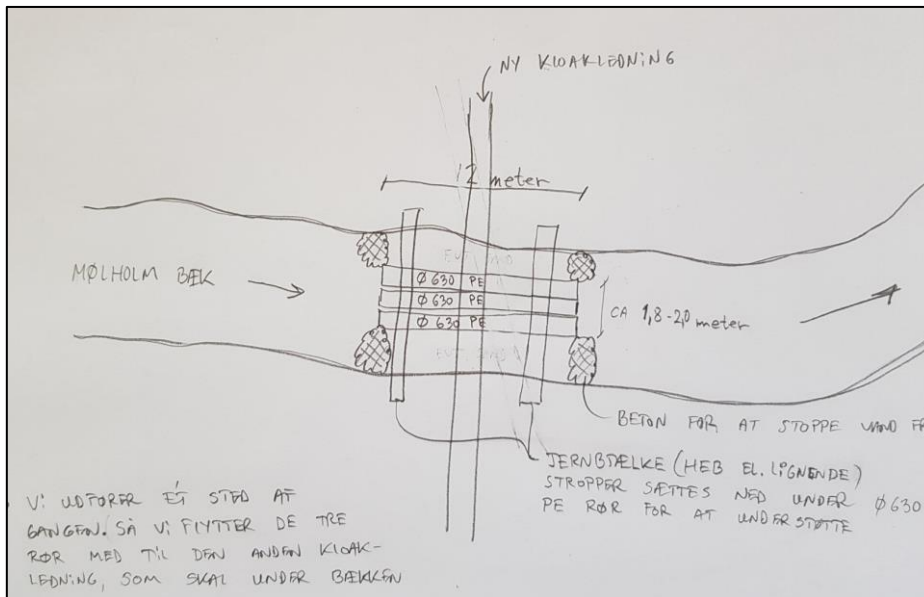 NY KLOAKLEDNING
12 meter
MØLHOLM BÆK
Ø 630 PE
Ø 630 PE
Ø 630 PE
CA 1,8-2,0 meter
BETON FOR AT STOPPE VAND
JERNBJÆLKE (HEB EL. LIGNENDE)
STROPPER SÆTTES NED UNDER Ø630
PE RØR FOR AT UNDERSTØTTE
Vi UDFØRER ÉT STED AF
GANGEN. SÅ Vi FLYTTER DE TRE
RØR MED TIL DEN ANDEN KLOAK-
LEDNING, SOM SKAL UNDER BÆKKEN